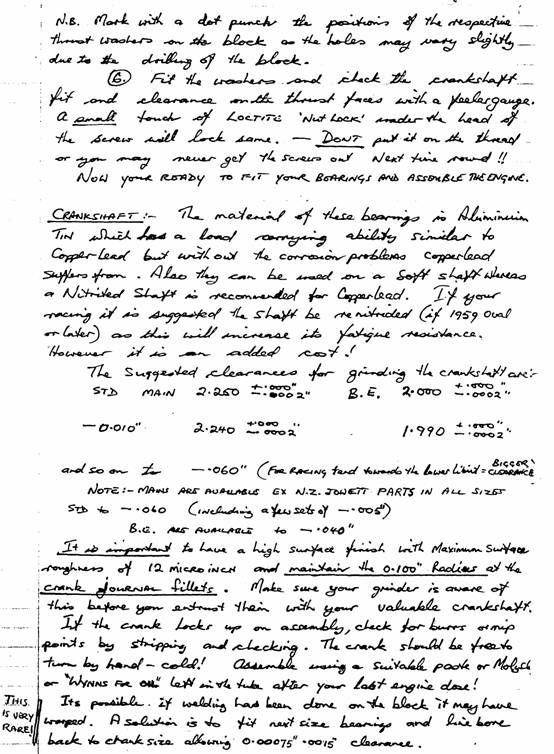 N.B. Mark with a dot punch the positions of the respective
thrust washers on the block as the holes may vary slightly
due to the drilling of the block.
⑥ Fit the washers and check the crankshaft
fit and clearance on the thrust faces with a feeler gauge.
A small touch of LOCTITE 'NUT LOCK' under the head of
the screw will lock same. — DONT put it on the thread
or you may never get the screws out next time round!!
NOW YOUR READY TO FIT YOUR BEARINGS AND ASSEMBLE THE ENGINE.
CRANKSHAFT:- The material of these bearings is Aluminium
TIN which has a load carrying ability similar to
Copper-lead but without the corrosion problems copperlead
suffers from. Also they can be used on a soft shaft whereas
a Nitrited Shaft is recommended for Copperlead. If your
racing it is suggested the shaft be renitrided (if 1959 Oval
or later) as this will increase its fatigue resistance.
However it is an added cost!
The Suggested clearances for grinding the crankshaft are:-
STD MAIN 2.250 +.000" -.0002" B.E. 2.000 +.000" -.0002"
-0.010" 2.240 +.000 -.0002 1.990 +.000" -.0002"
and so on to -.060" (FOR RACING tend towards the lower limit = BIGGER CLEARANCE
NOTE:- MAINS ARE AVAILABLE EX N.Z. JOWETT PARTS IN ALL SIZES
STD to -.060 (including a few sets of -.005")
B.E. ARE AVAILABLE to -.040"
It is important to have a high surface finish with Maximum Surface
roughness of 12 MICROINCH and maintain the 0.100" Radius at the
crank JOURNAL fillets. Make sure your grinder is aware of
this before you entrust them with your valuable crankshaft.
If the crank locks up on assembly, check for burrs or nip
points by stripping and checking. The crank should be free to
turn by hand - cold! Assemble using a suitable paste or Molyslip
or "WYNNS FOR OIL" left in the tube after your last engine dose!
THIS IS VERY RARE!
Its possible if welding has been done on the block it may have
warped. A solution is to fit next size bearings and line bore
back to crank size allowing 0.00075" .0015" clearance.